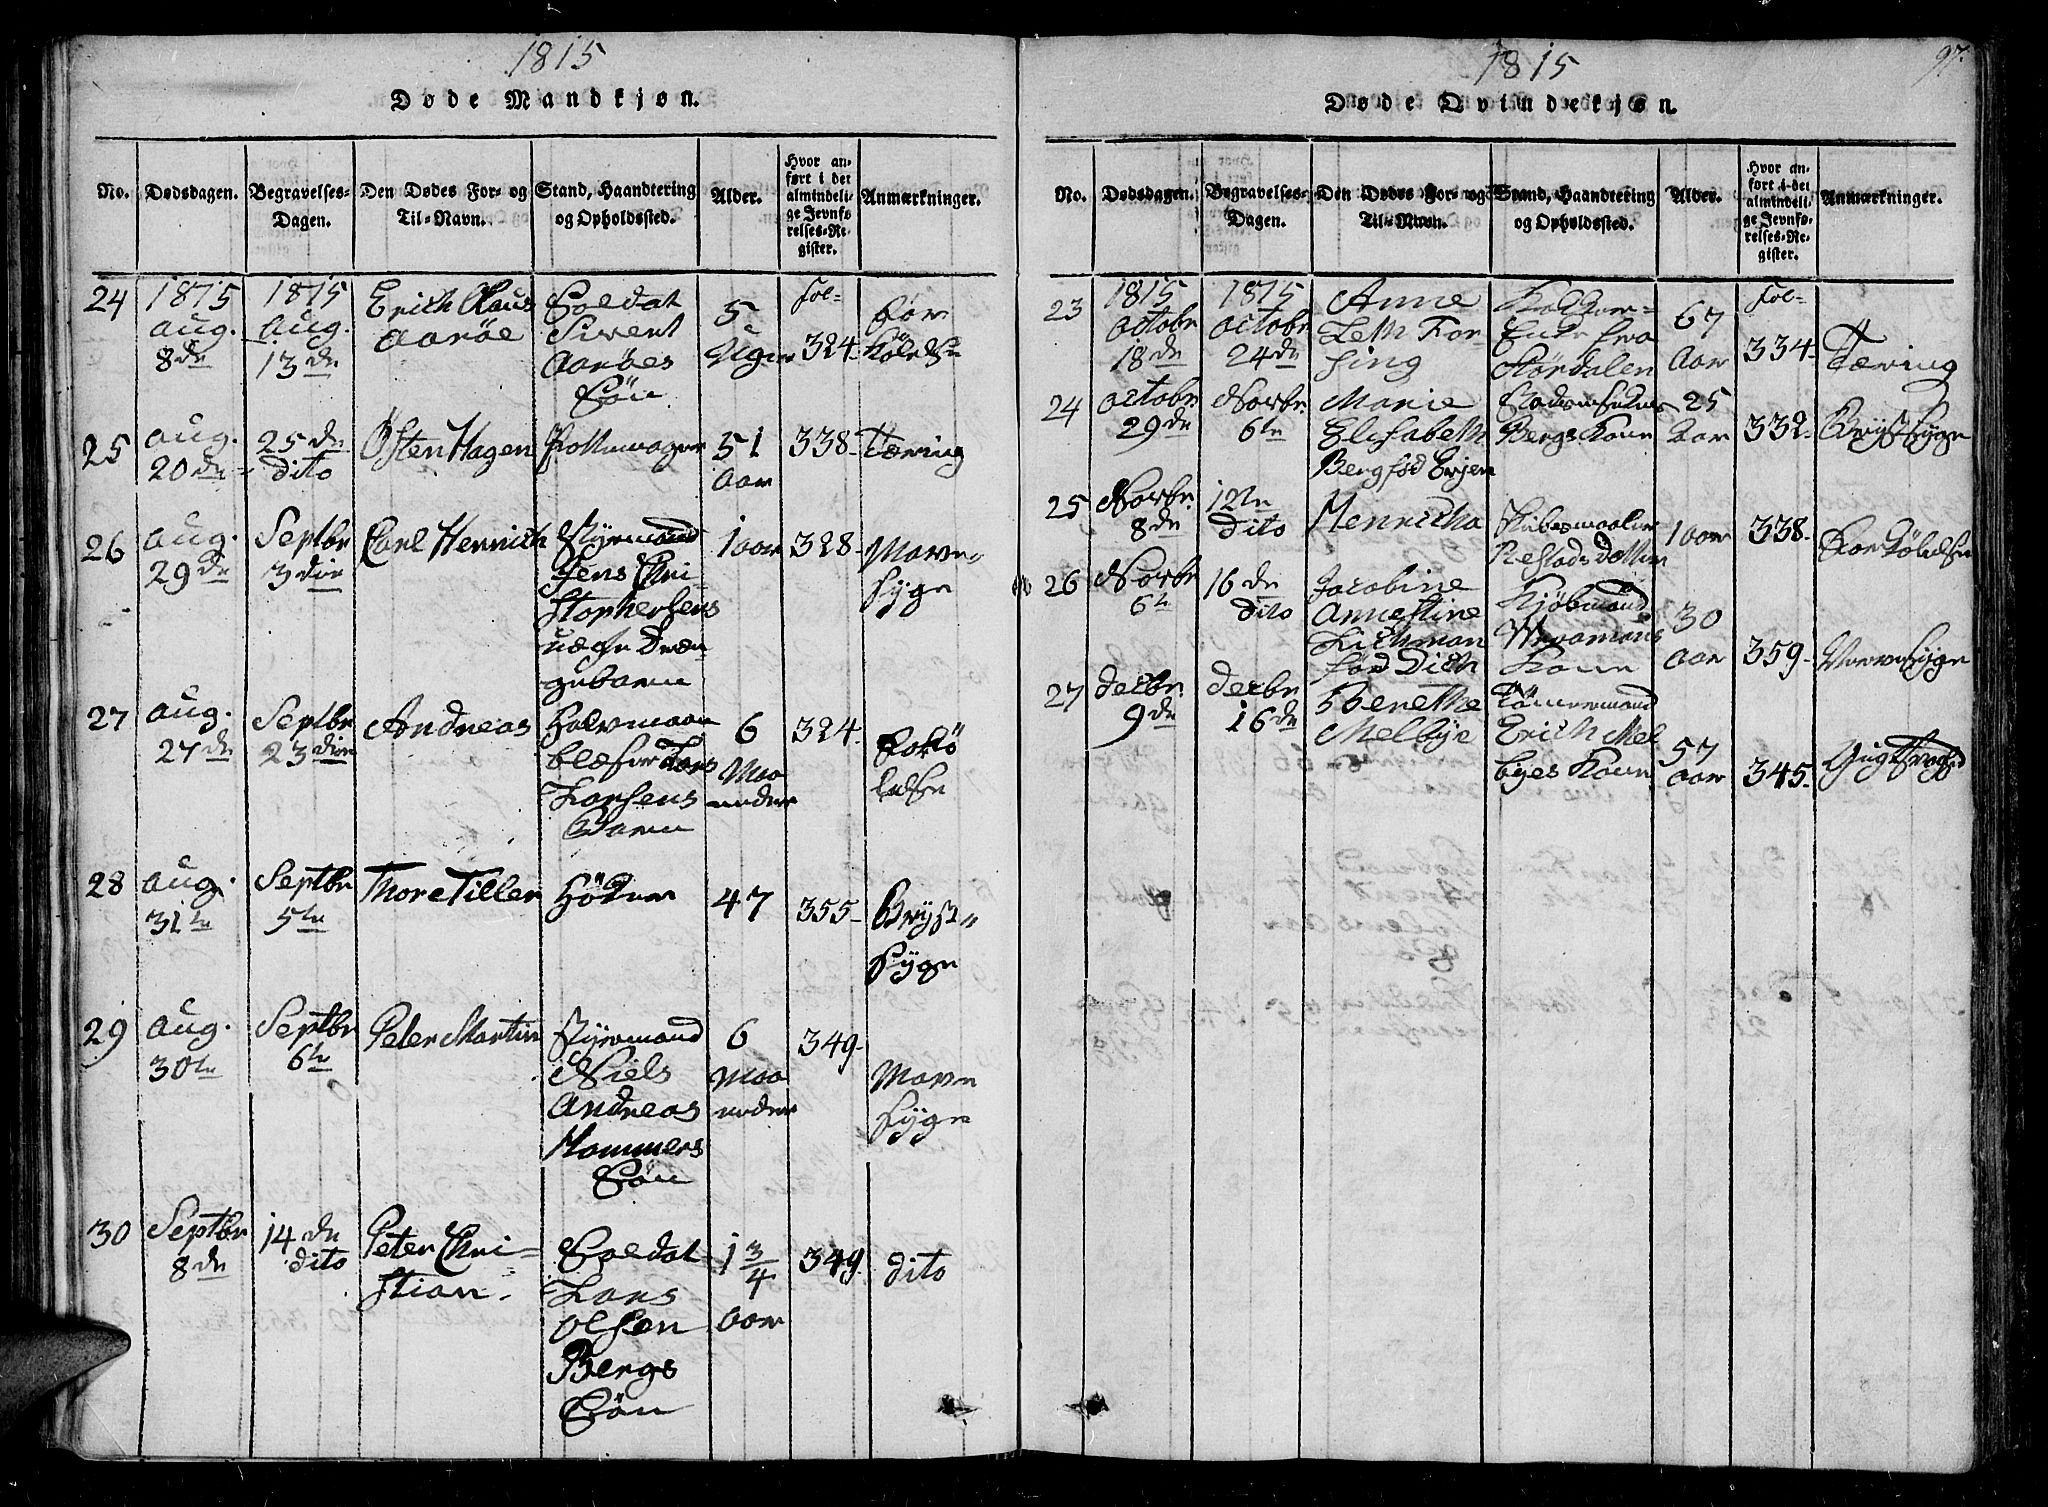 1815
Døde Mandkjøn.
No. Dødsdagen. Begravelses-Dagen. Den Dødes For- og Til-Navn. Stand, Haandtering og Opholdssted. Alder. Hvor anført i det almindelige Jevnførelses-Register. Anmærkninger.
24 1815 1815 Erich Claus Soldat 5 fol-
aug. aug. Aarøe Sivert Uger 324-
8de 13de Aarøes
Søn
25 aug. 25de Østen Hagen 51 338- Tæring
20de dito aar
26 aug. Septbr Carl Henrich Styrmand 1 aar 328- Mave-
29de 3die Jens Chri- syge
stophersens
uægte Dren-
gebarn
27 aug. Septbr Andreas 6 324-
27de 23die Lars Maa
Larsens neder
Barn
28 aug. Septbr Thore Tiller Høker 47 355- Bryst-
31te 5te syge
29 aug. Septbr Peter Martin Styrmand 6 349-
30te 6te Niels Maa Mave
Andreas neder syge
Hammers
Søn
30 Septbr 14de Peter Chri- Soldat 1 3/4 349- dito
8de dito stian. Lars aar
Olsen
Bergs
Søn
1815 97.
Døde Qvindekjøn.
No. Dødsdagen. Begravelses-Dagen. Den Dødes For- og Til-Navn. Stand, Haandtering og Opholdssted. Alder. Hvor anført i det almindelige Jevnførelses-Register. Anmærkninger.
23 1815 1815 Anne 67 fol-
octobr octobr Leth For- Enke fra aar 334- Tæring
18de 24de sing Størdalen
24 octobr Novbr Marie 25
29de 6te Elisabeth Bergs Kone aar 332- Brystsyge
Berg fød
25 Novbr. 12te Henricha 1 aar 338-
8de dito Datter
26 Novbr 16de Jacobine Kjøbmand 30
6te dito Annestine aar 359-
Kone
fød Dich
27 decbr. decbr Berethe Tømmermand
9de 16de Melbye Erich Mel 57
byes Kone aar 345-